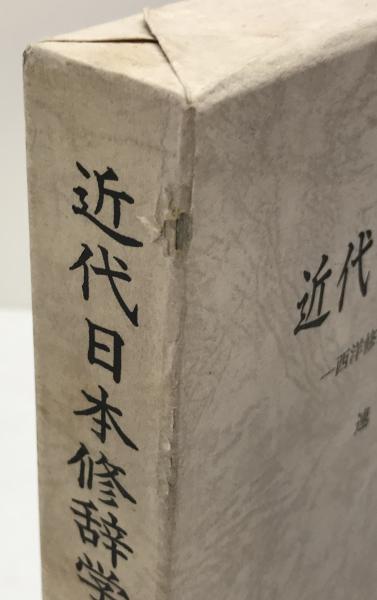 近代日本修辞学
近代
—西洋修